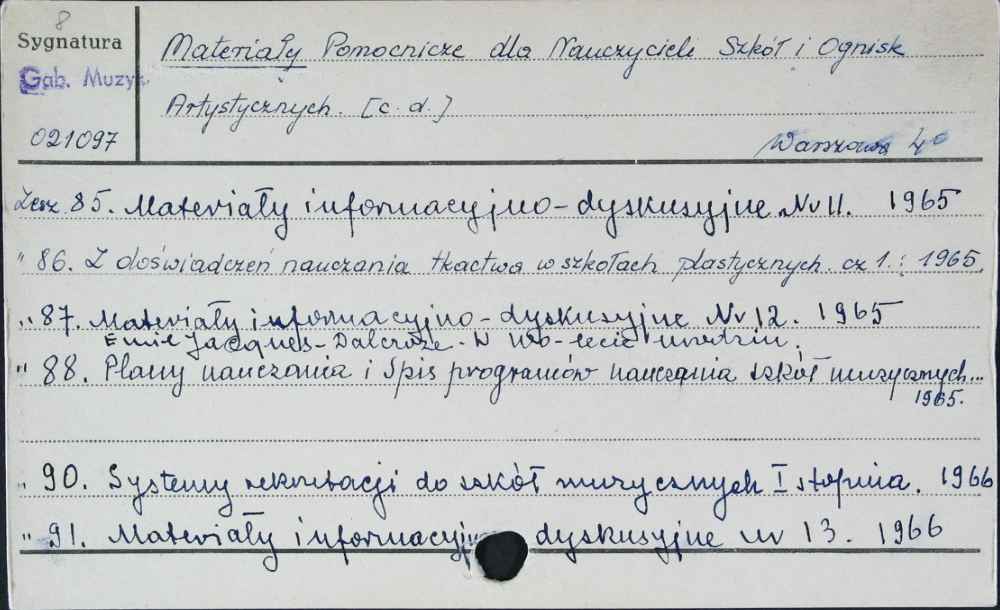 8
Sygnatura
Gab. Muzyk.
021097
Materiały Pomocnicze dla Nauczycieli Szkół i Ognisk
Artystycznych. [c. d.]
Warszawa 4°
Zesz. 85. Materiały informacyjno-dyskusyjne Nr 11. 1965
" 86. Z doświadczeń nauczania tkactwa w szkołach plastycznych. cz 1.: 1965.
" 87. Materiały informacyjno-dyskusyjne Nr 12. 1965
Emil Jacques-Dalcroze. W 100-lecie urodzin.
" 88. Plany nauczania i Spis programów nauczania szkół muzycznych...
1965.
" 90. Systemy rekrutacji do szkół muzycznych I stopnia. 1966
" 91. Materiały informacyj dyskusyjne nr 13. 1966